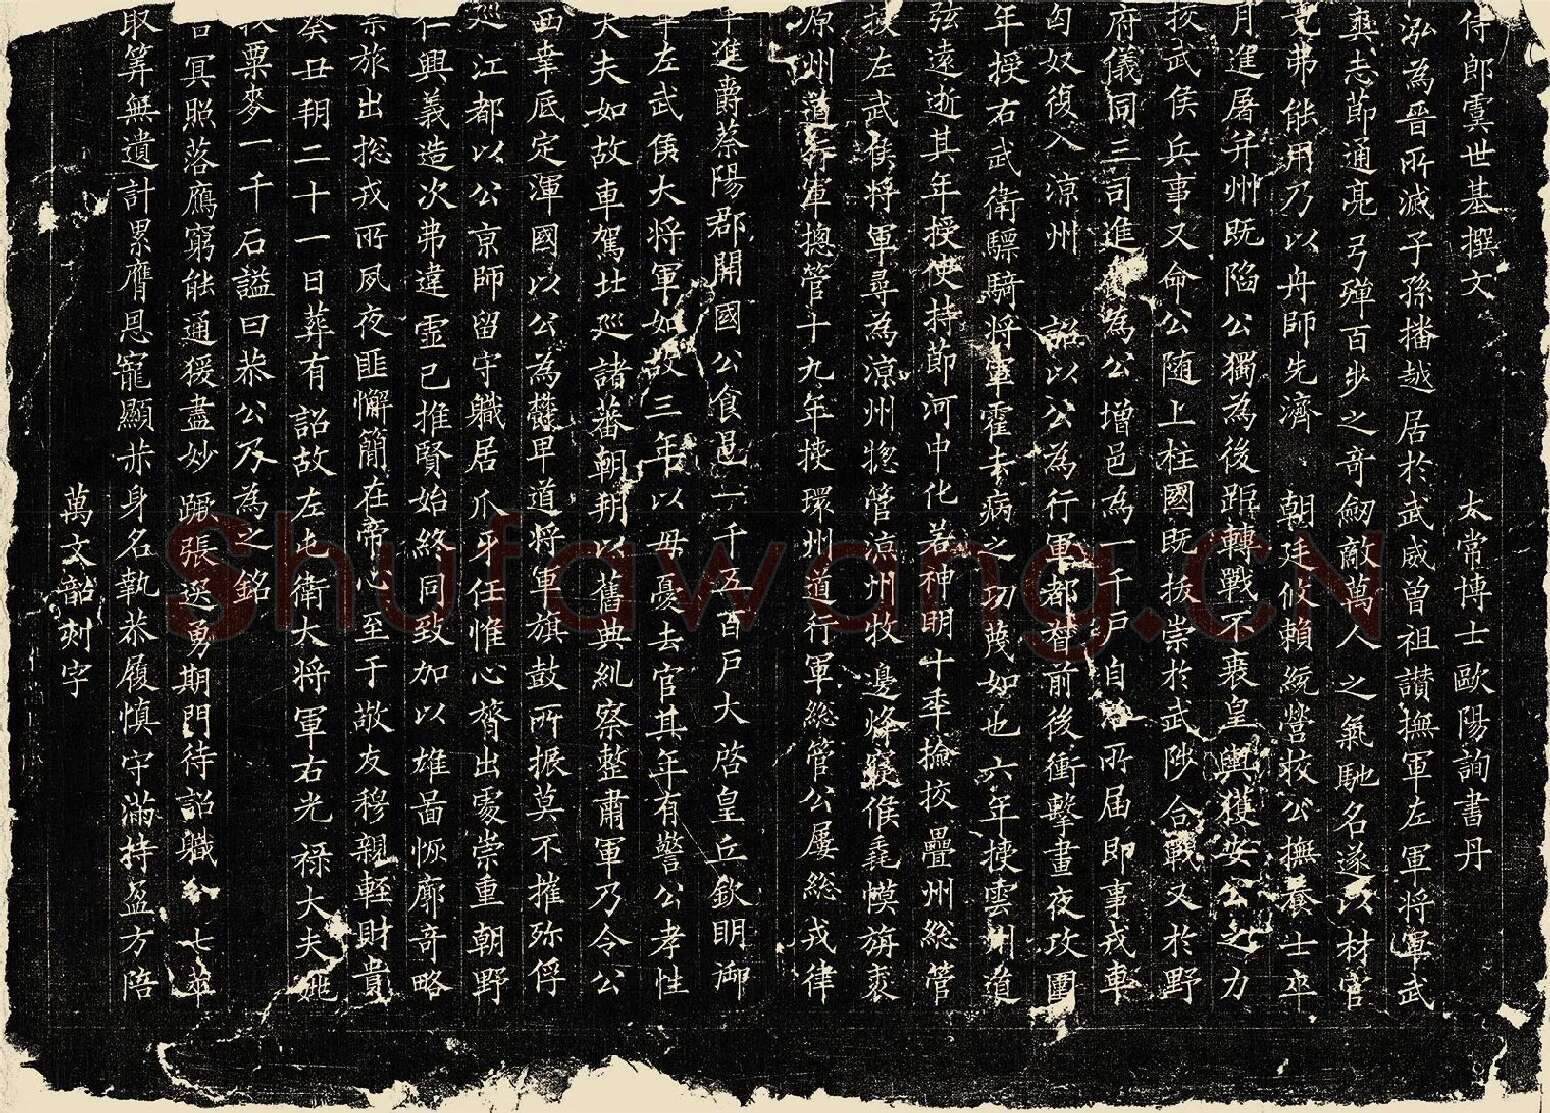 侍郎虞世基撰文　太常博士歐陽詢書丹
泓為晉所滅子孫播越居於武威曾祖讃撫軍左軍将軍武
奭志節通亮弓殫百步之奇劒敵萬人之氣馳名遂以材官
弗能用乃以舟師先濟　朝廷攸賴統營校公撫養士卒
月進屠并州既陷公獨為後距轉戰不衰皇輿獲安公之力
挍武侯兵事又命公随上柱國既拔崇於武陟合戰又於野
府儀同三司進爵為公增邑為一千戶自居所届即事戎車
匈奴復入涼州　詔以公為行軍都督前後衝擊晝夜攻圍
年授右武衛驃騎将軍霍去病之功蔑如也六年授雲州道
弦遠逝其年授使持節河中化若神明十年撿挍疊州総管
挍左武侯将軍尋為涼州揔管涼州牧邊烽候毳幙旃裘
原州道行軍揔管十九年授環州道行軍総管公屢総戎律
進爵蔡陽郡開國公食邑一千五百戶大啓皇丘欽明御
年左武侯大将軍如故三年以母憂去官其年有警公孝性
大夫如故車駕北巡諸蕃朝朔以舊典糺察整肅軍乃令公
西幸底定渾國以公為道将軍旗鼓所振莫不摧殄俘
巡江都以公京師留守職居爪牙任惟心膂出處崇重朝野
仁興義造次弗違虛己推賢始終同致加以雄啚恢廓奇略
旅出捴戎所夙夜匪懈簡在帝心至于敬友穆親輕財貴
癸丑朔二十一日葬有　詔故左屯衛大将軍右光祿大夫姚
粟麥一千石謚曰恭公乃為之銘
冥照落鴈窮能通猨盡妙蹶張迭勇期門待詔職　七萃
取筭無遺計累膺恩寵顯茲身名執恭履慎守滿持盈方陪
萬文韶刻字
Shufawang.CN